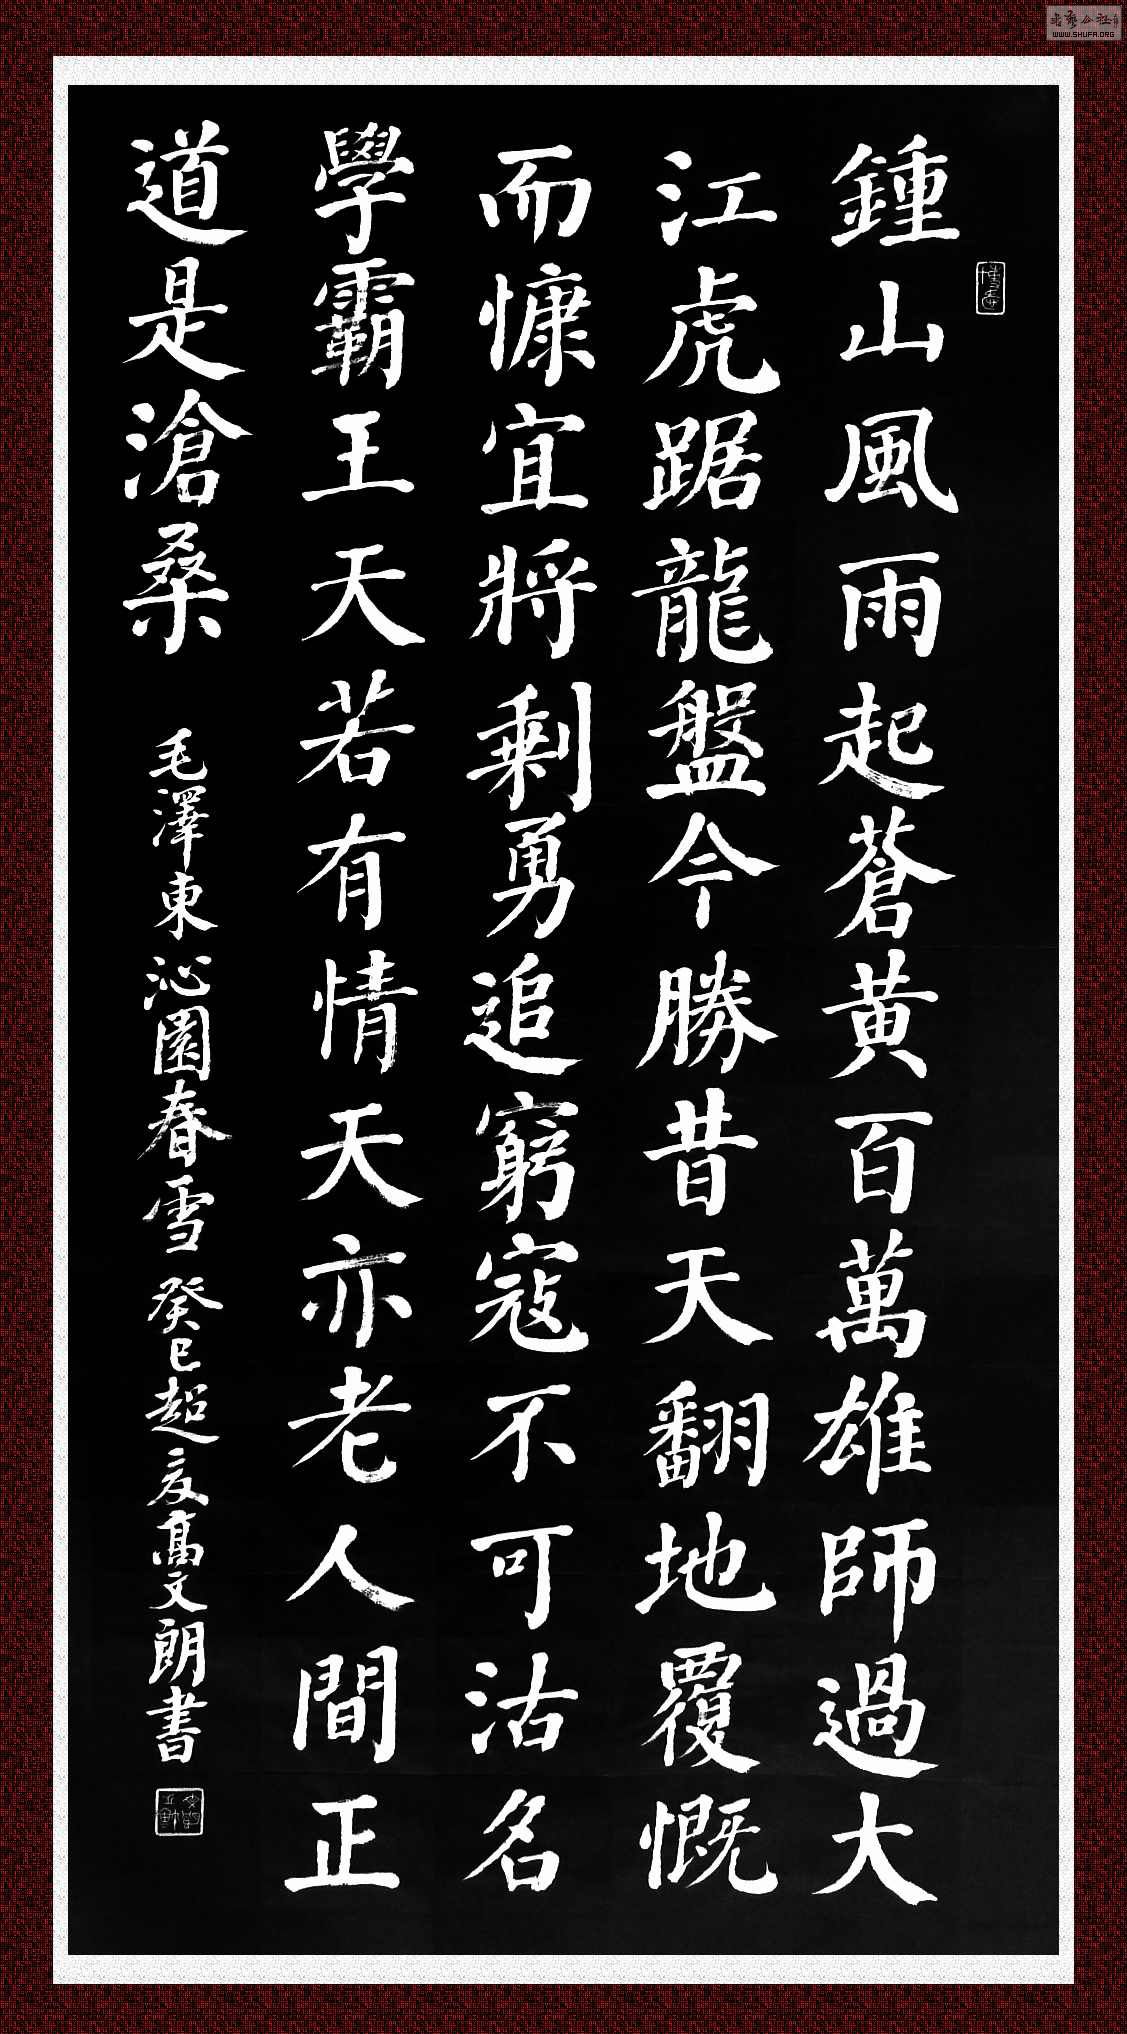 鍾山風雨起蒼黄百萬雄師過大
江虎踞龍盤今勝昔天翻地覆慨
而慷宜將剩勇追窮寇不可沽名
學霸王天若有情天亦老人間正
道是滄桑
毛澤東沁園春雪 癸巳超高文朗書
WWW.SHUFA.ORG